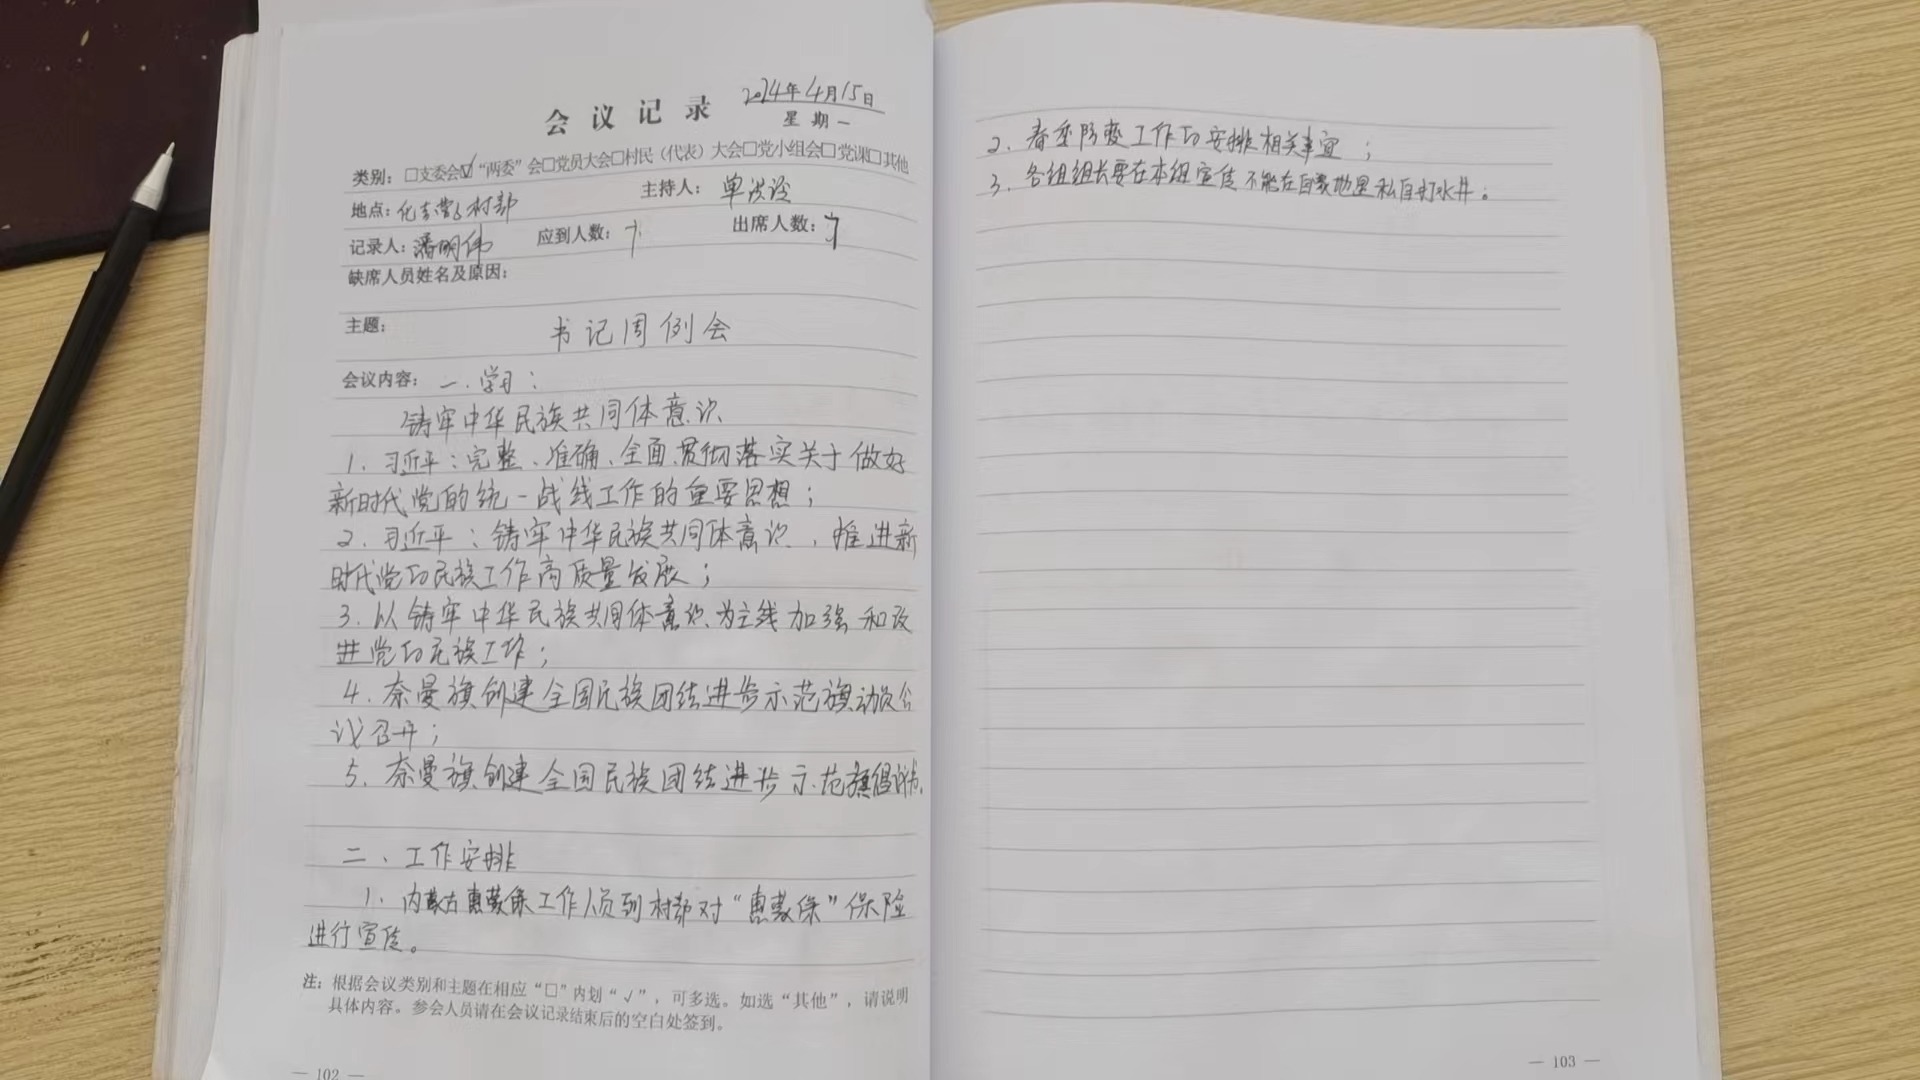 会议记录
2024年4月15日
星期一
类别：□支委会☑“两委”会□党员大会□村民（代表）大会□党小组会□党课□其他
地点： 村部 主持人：单
记录人：潘明伟 应到人数：7 出席人数：7
缺席人员姓名及原因：
主题： 书记周例会
会议内容：一.学习：
铸牢中华民族共同体意识
1.习近平：完整、准确、全面贯彻落实关于做好
新时代党的统一战线工作的重要思想；
2.习近平：铸牢中华民族共同体意识，推进新
时代党的民族工作高质量发展；
3.以铸牢中华民族共同体意识为主线加强和改
进党的民族工作；
4.奈曼旗创建全国民族团结进步示范旗动员会
议召开；
5.奈曼旗创建全国民族团结进步示范旗倡议书.
二、工作安排
1.内蒙古惠蒙保工作人员到村部对“惠蒙保”保险
进行宣传。
注：根据会议类别和主题在相应“□”内划“√”，可多选。如选“其他”，请说明
具体内容。参会人员请在会议记录结束后的空白处签到。
— 102 —
2.春季防疫工作的安排相关事宜；
3.各组组长要在本组宣传不能在自家地里私自打水井。
— 103 —